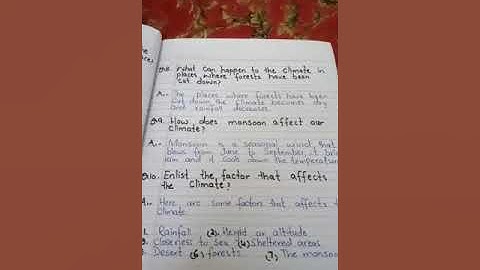 Q8. What can happen to the climate in
places where forests have been
cut down?
A.- The places where forests have been
cut down the climate becomes dry
and rainfall decreases.
Q9. How does monsoon affect our
climate?
A.- Monsoon is a seasonal wind that
blows from June to September it
rain and it cools down the temperature
Q10. Enlist the factor that affects
the Climate?
A.- Here are some factors that affects
climate
1. Rainfall (2). Height or altitude
3. Closeness to sea (4) Sheltered areas
5. Desert (6) forests (7) The monsoon